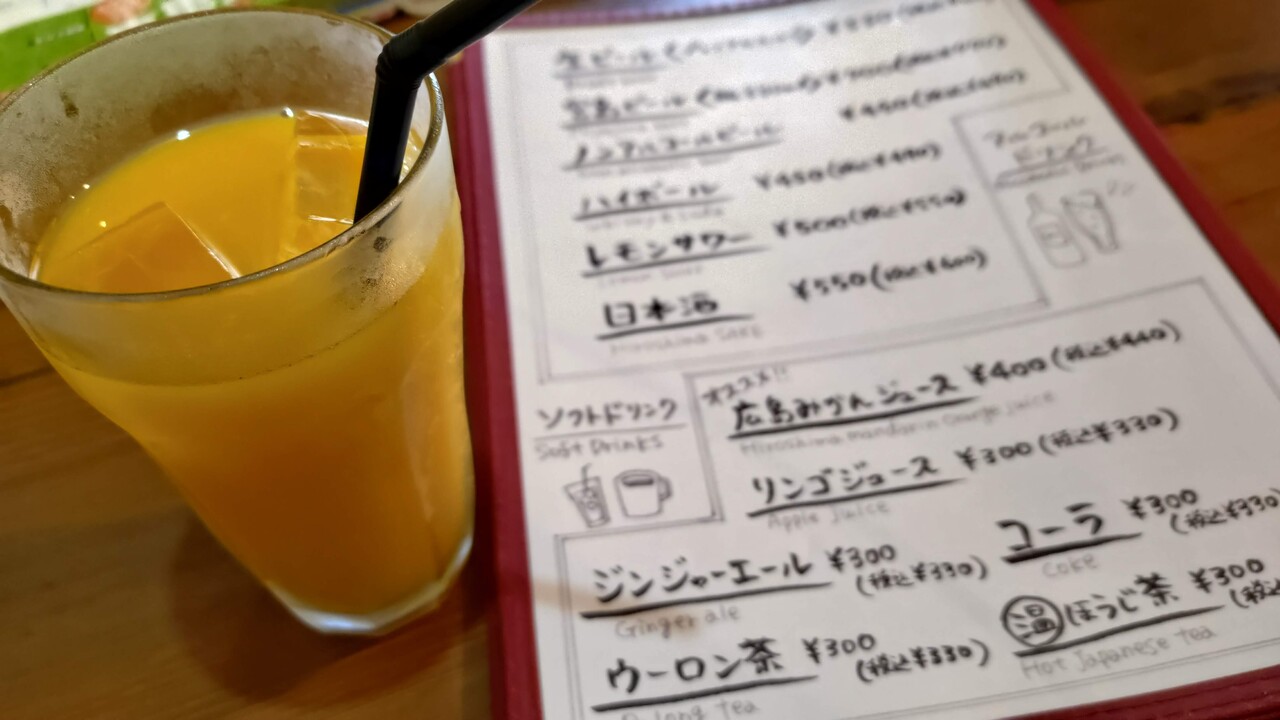 生ビール
広島ビール
ノンアルコールビール ¥450
ハイボール ¥450(税込¥490)
レモンサワー ¥500(税込¥550)
日本酒 ¥550(税込¥600)
Hiroshima Sake
アルコール
ドリンク
ソフトドリンク
Soft Drinks
オススメ!!
広島みかんジュース ¥400(税込¥440)
Hiroshima mandarin orange juice
リンゴジュース ¥300(税込¥330)
Apple juice
コーラ ¥300
(税込¥330)
Coke
ジンジャーエール ¥300
(税込¥330)
Ginger ale
温 ほうじ茶 ¥300
Hot Japanese tea
ウーロン茶 ¥300
(税込¥330)
Oolong tea